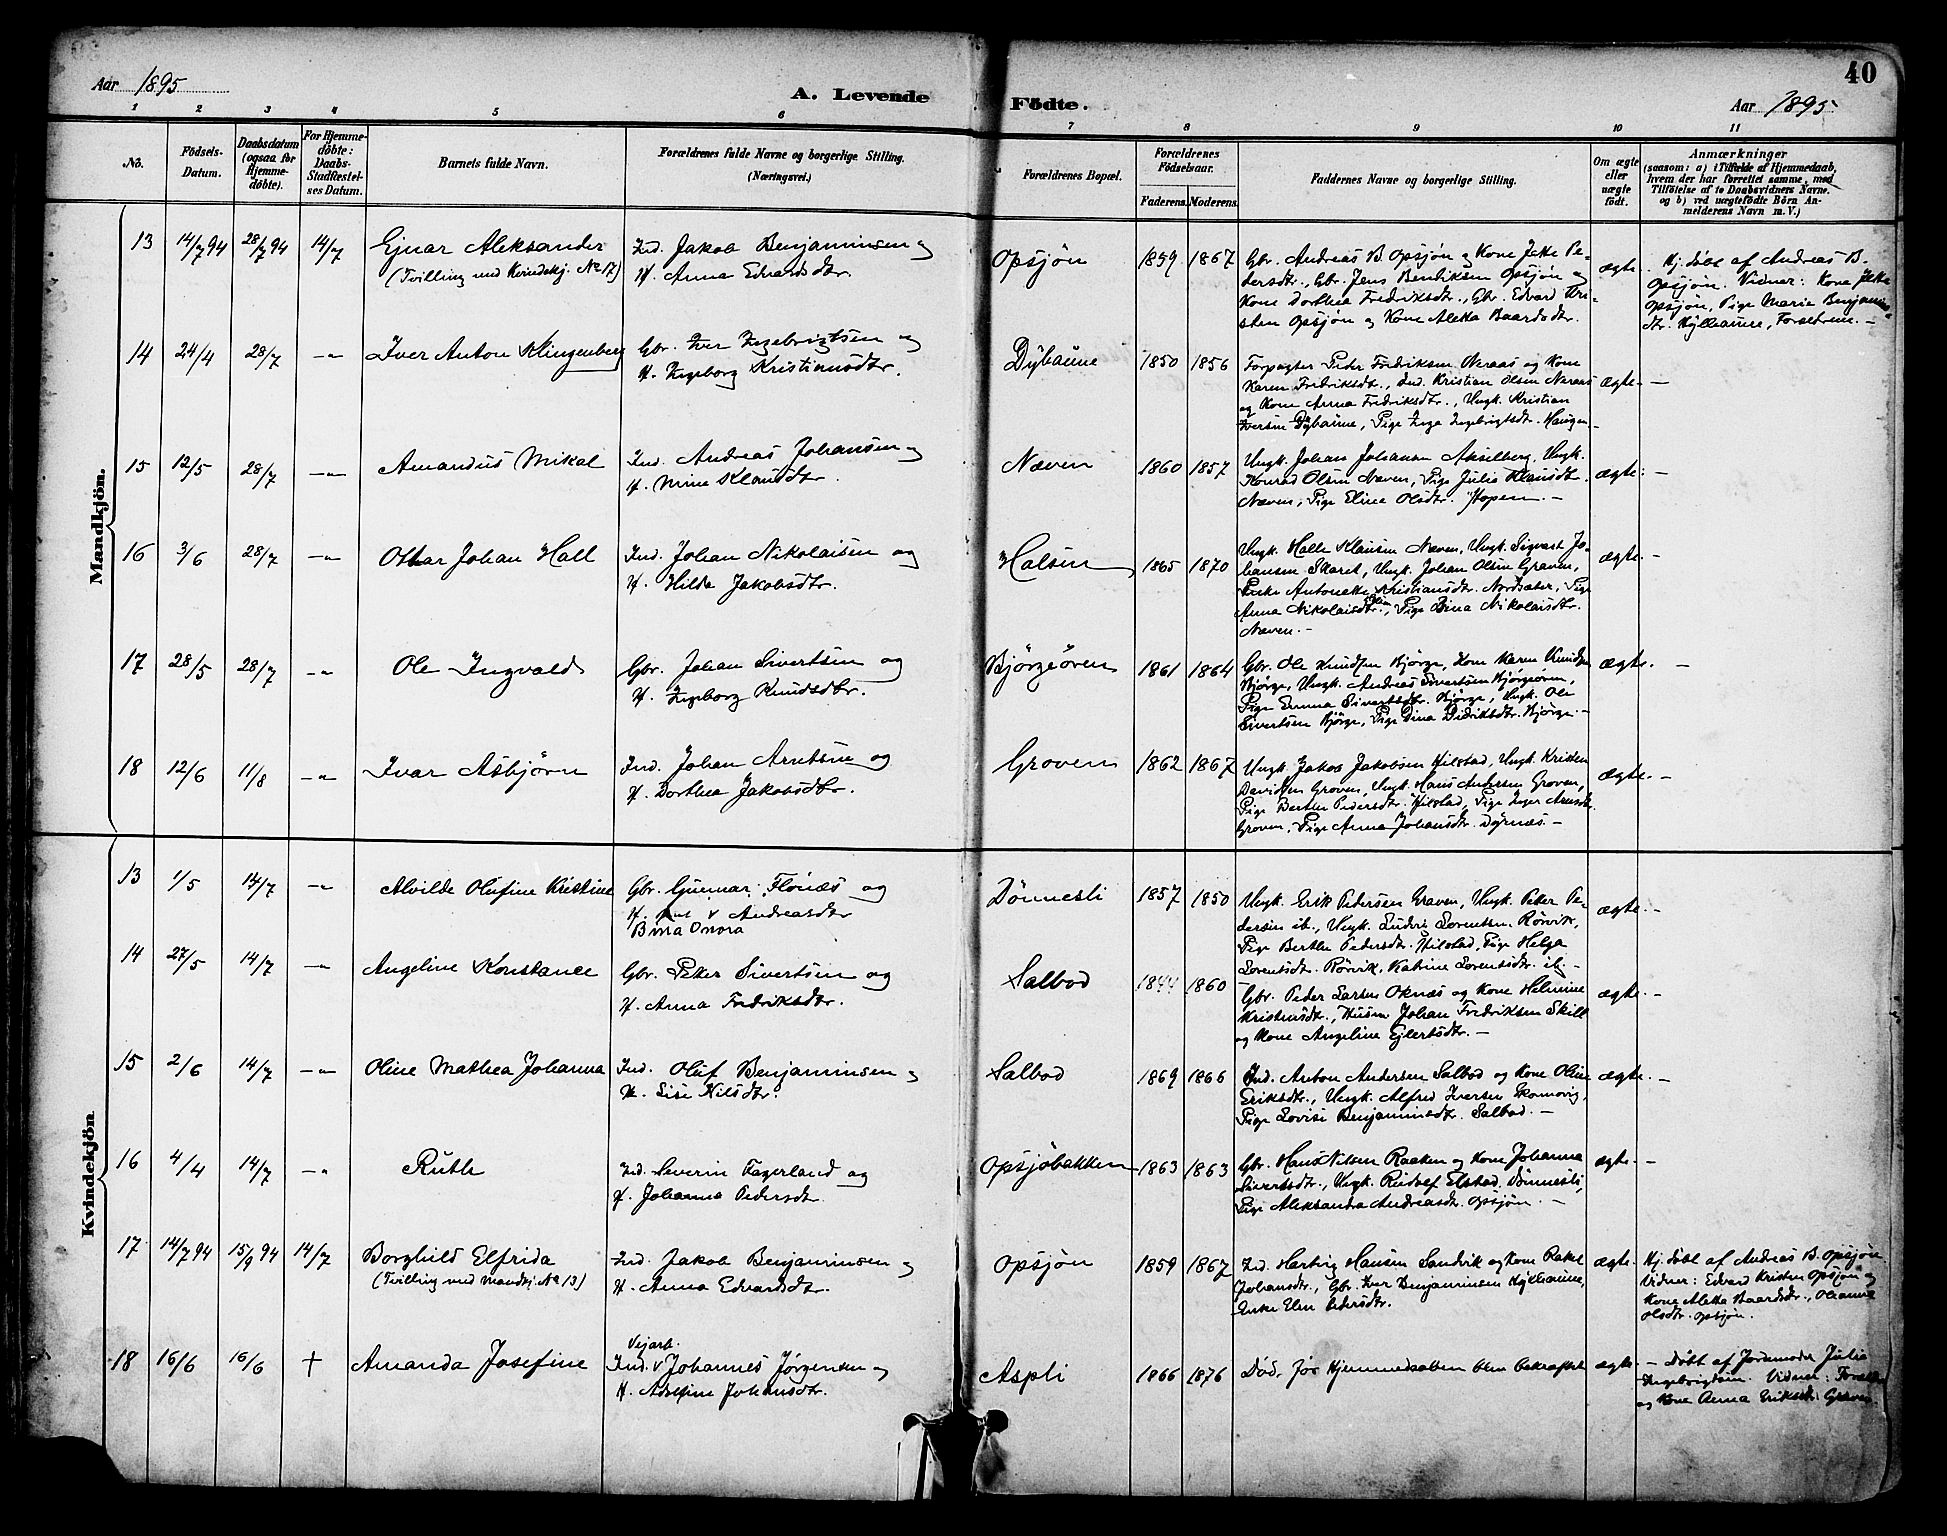 Aar 1895
A. Levende Födte.
Aar 1895
40
1 2 3 4 5 6 7 8 9 10 11
No.
Födsels-Datum.
Daabsdatum (ogsaa for Hjemme-döbte).
For Hjemme-döbte: Daabs-Stadfæstel-ses Datum.
Barnets fulde Navn.
Forældrenes fulde Navne og borgerlige Stilling. (Næringsvei.)
Forældrenes Bopæl.
Forældrenes Födselsaar.
Faderens. Moderens.
Faddernes Navne og borgerlige Stilling.
Om ægte eller uægte födt.
Anmærkninger
(saasom: a) i Tilfælde af Hjemmedaab,
hvem der har forrettet samme, med
Tilföielse af to Daabsvidners Navne.
og b) ved uægtefödte Börn An-
melderens Navn m. V.)
Mandkjön.
13 14/7 94 28/7 94 14/7 Ejnar Aleksander
(Tvilling med Kvindekj. No 17)
Ind. Jakob Benjaminsen og
H. Anna Edvardsdtr.
Opsjøn 1859 1867
Gbr. Andreas B. Opsjøn og Kone Jekke Pe-
dersdtr., Gbr. Jens Bendiksen Opsjøn og
Kone Dorthea Fredriksdtr., Gbr. Edvard Kri-
sten Opsjøn og Kone Aletta Baardsdtr.
ægte.
Hj. døbt af Andreas B.
Opsjøn. Vidner: Kone Jekke
Opsjøn, Pige Marie Benjamins-
dtr. Kylhaune, Forsetrem. —
14 24/4 28/7 -"- Iver Anton Klingenberg
Gbr. Iver Ingebrigtsen og
H. Ingeborg Kristiansdtr.
Dybaune 1850 1856
Forpagter Peder Fredriksen Neraas og Kone
Karen Fredriksdt., Ind. Kristian Olsen Neraas
og Kone Anna Fredriksdtr., Ungk. Kristian
Iversen Dybaune, Pige Inga Ingebrigtsdt. Haugen
ægte. —
15 12/5 28/7 -"- Amandus Mikal
Ind. Andreas Johansen og
H. Nrine Klausdtr.
Næven 1860 1857
Ungk. Johan Johansen Akselberg, Ungk.
Konrad Olsen Næven, Pige Julie Klausdtr.
Næven, Pige Eline Olsdtr. Hopen. —
ægte. —
16 3/6 28/7 -"- Ottar Johan Hall
Ind. Johan Nikolaisen og
H. Hilda Jakobsdtr.
Halsen 1865 1870
Ungk. Halle Klausen Næven, Ungk. Sigvart Jo-
hansen Skaret, Ungk. Johan Olsen Graven,
Enke Antonette Kristiansdtr. Nordsæter, Pige
Anna Nikolaisdtr., Pige Dina Nikolaisdtr.
Næven. —
ægte. —
17 28/5 28/7 -"- Ole Ingvald
Gbr. Johan Sivertsen og
H. Ingeborg Knudsdtr.
Bjørgeøren 1861 1864
Gbr. Ole Knudsen Bjørge, Kone Karen Knudsen
Bjørge, Ungk. Andreas Sivertsen Bjørgeøren,
Pige Emma Sivertsdtr. Bjørge, Ungk. Ole
Sivertsen Bjørge, Pige Dina Didriksdtr. Bjørge. —
ægte. —
18 12/6 11/8 -"- Ivar Asbjørn
Ind. Johan Arntsen og
H. Dorthea Jakobsdtr.
Groven 1862 1867
Ungk. Jakob Jakobsen Hilstad, Ungk. Kristen
Davidsen Groven, Ungk. Hans Andersen Groven,
Pige Berthe Pedersdtr. Hilstad, Pige Inger Arntsdtr.
Groven, Pige Anna Johansdtr. Dyrnæs. —
ægte. —
Kvindekjön
13 1/5 14/7 -"- Alvilde Olufine Kristine
Gbr. Gunnar Flonæs og
H. Andreasdtr
Dønnesli 1857 1850
Ungk. Erik Pedersen Graven, Ungk. Peter Pe-
dersen ib., Ungk. Ludvig Lorentsen Rørvik,
Pige Berthe Pedersdtr. Hilstad, Pige Helga
Lorentsdt. Rørvik, Katrine Lorentsdtr. ib. —
ægte. —
14 27/5 14/7 -"- Angeline Konstance
Gbr. Peter Sivertsen og
H. Anna Fredriksdtr.
Salbod 1844 1860
Gbr. Peder Larsen Oknæs og Kone Helmine
Kristensdtr., Husm. Johan Fredriksen Skill
og Kone Angeline Ejlertsdtr. —
ægte. —
15 2/6 14/7 -"- Oline Mathea Johanna
Ind. Oluf Benjaminsen og
H. Lise Nilsdtr.
Salbod 1869 1866
Ind. Anton Andersen Salbod og Kone Oline
Eriksdtr., Ungk. Alfred Iversen Skomovig,
Pige Lovise Benjaminsdtr. Salbod. —
ægte. —
16 4/4 14/7 -"- Ruth
Ind. Severin Fagerland og
H. Johanna Pedersdt.
Opsjøbakken 1863 1863
Gbr. Hans Nilsen Raaken og Kone Johanna
Sivertsdtr., Ungk. Rudolf Elstad, Dønnesli,
Pige Aleksandra Andreasdtr. Opsjøn. —
ægte. —
17 14/7 94 15/9 94 14/7 Borghild Elfrida
(Tvilling med Mandkj. No 13)
Ind. Jakob Benjaminsen og
H. Anna Edvardsdt.
Opsjøn 1859 1867
Ind. Hartvig Hansen Sandvik og Kone Rakel
Johansdtr., Gbr. Iver Benjaminsen Kylhaune,
Enke Elen Pedersdtr.
ægte.
Hj. døbt af Andreas B. Opsjøn
Vidner: Edvard Kristen Opsjøn og
Kone Aletta Baardsdtr., Oleanna
Olsdtr. Opsjøn.
18 16/6 16/6 † Amanda Josefine
Vejarb.
Ind. v Johannes Jørgensen og
H. Adolfine Johansdtr.
Aspli 1866 1876
Død, før Hjemmedaaben blev bekræftet
ægte.
— Døbt af Jordemoder Julia
Ingebrigtsen. Vidner:
og Kone Anna Eriksdt. Graven.